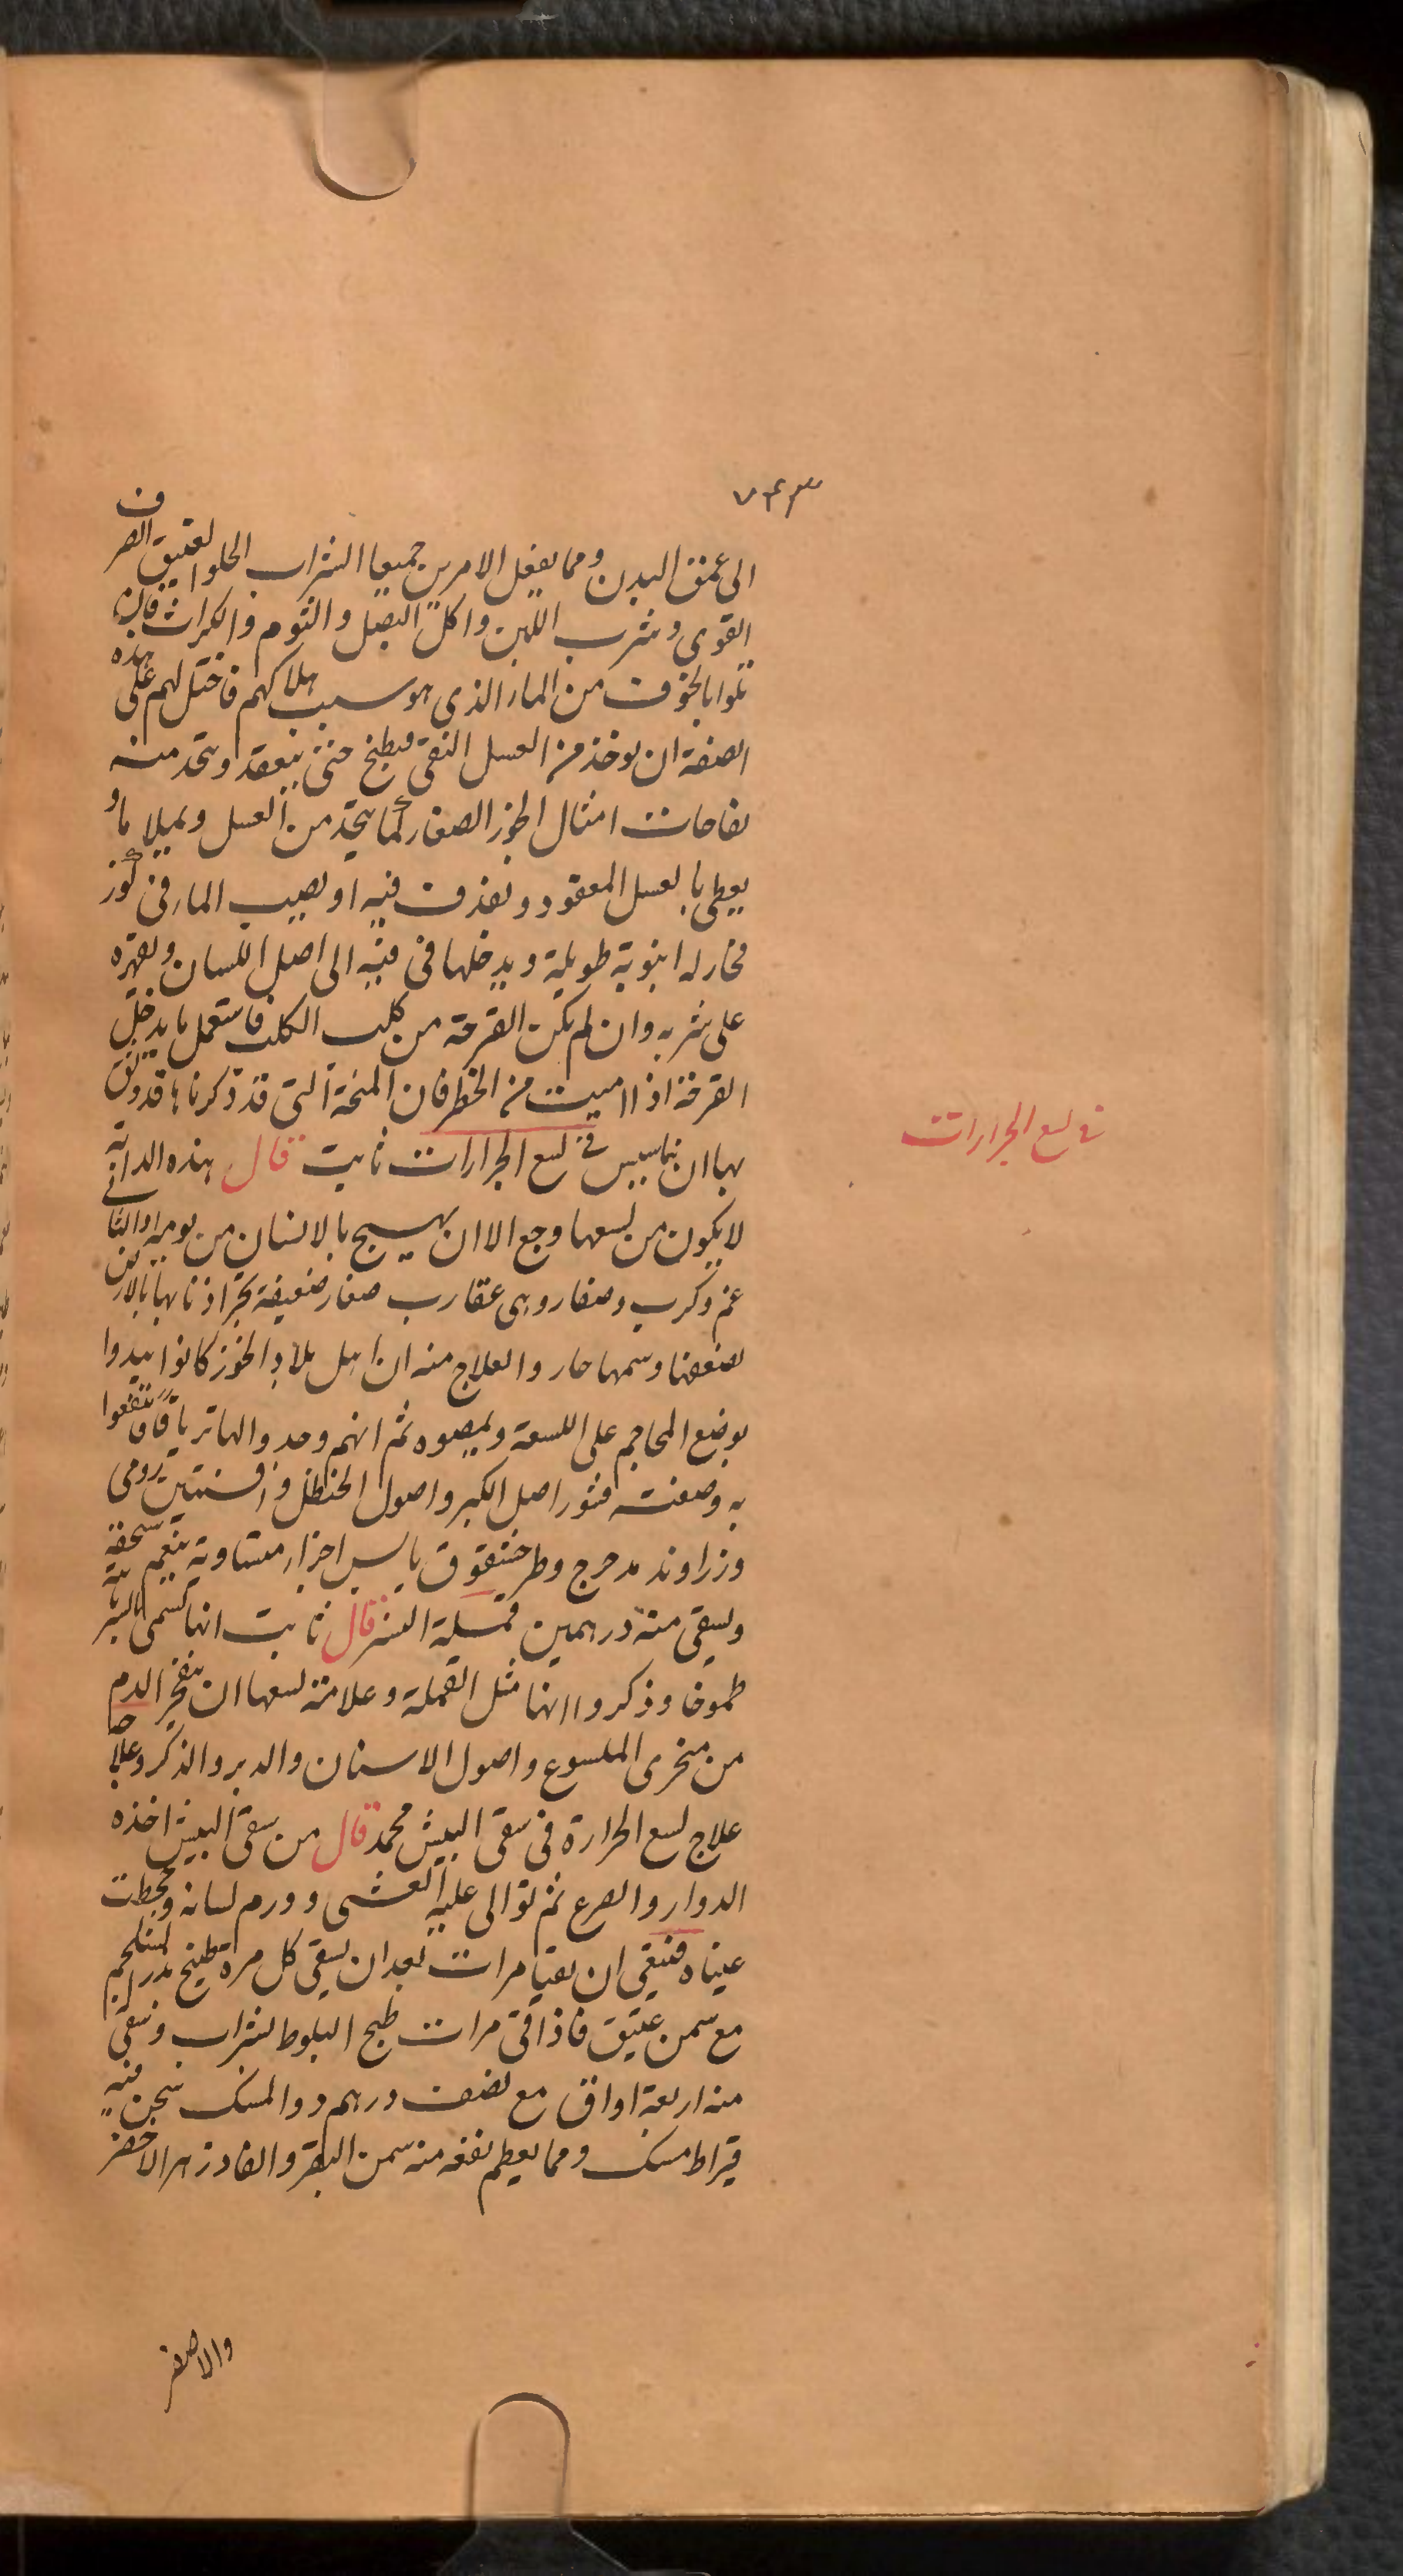 ٧٤٣
الى عمق البدن ومما يفعل الامرين جميعا الشراب الحلو العتيق الصرف
القوى وشرب اللبن واكل البصل والثوم والكراث فان
تلوا بالخوف من الماء الذى هو سبب هلاكهم فاحتل لهم على هذه
الصفة ان يوخذ من العسل النقى فيطبخ حتى ينعقد ويتخذ منه
نفاخات امثال الجوز الصغار كما يتخذ من العسل ويملا ماء و
يغطى بالعسل المعقود ويقذف فيه او يصيب الماء فى كوز
فخار له انبوبة طويلة ويدخلها فى فيه الى اصل اللسان ويقهره
على شربه وان لم يكن القرحة من كلب الكلب فاستعمل ما يدخل
القرحة اذا امنت من الخطر فان المنحة التى قد ذكرناها قد وثق
بها اناسيس فى لسع الجرارات ثابت قال هذه الدابة
لا يكون من لسعها وجع الا ان يهيج بالانسان من يومه او الثانى
غم وكرب وصفار وهى عقارب صغار ضعيفة تجر اذنابها بالارض
لضعفها وسمها حار والعلاج منه ان اهل بلاد الخوز كانوا يبدوا
بوضع المحاجم على اللسعة ويمصوه ثم انهم وجدوا لها ترياقا فانتفعوا
به وصفته قشور اصل الكبر واصول الحنظل وافسنتين رومى
وزراوند مدحرج وطرخشقوق يابس اجزاء متساوية ينعم سحقه
ويسقى منه درهمين قملة النسر قال ثابت انها تسمى بالسريانية
طموفا وذكروا انها مثل القملة وعلامة لسعها ان ينفجر الدم
من منخرى الملسوع واصول الاسنان والدبر والذكر وعلاجها
علاج لسع الجرارة فى سقى البيش محمد قال من سقى البيش اخذه
الدوار والصرع ثم توالى عليه الغشى وورم لسانه وجحظت
عيناه فينبغى ان يقيا مرات بعد ان يسقى كل مرة طبيخ بزر السلجم
مع سمن عتيق فاذا قى مرات طبخ البلوط بشراب وسقى
منه اربعة اواق مع نصف درهم دوا المسك سحن فيه
قيراط مسك ومما يعظم نفعه منه سمن البقر والفادزهر الاخضر
والاصفر
فى لسع الجرارات